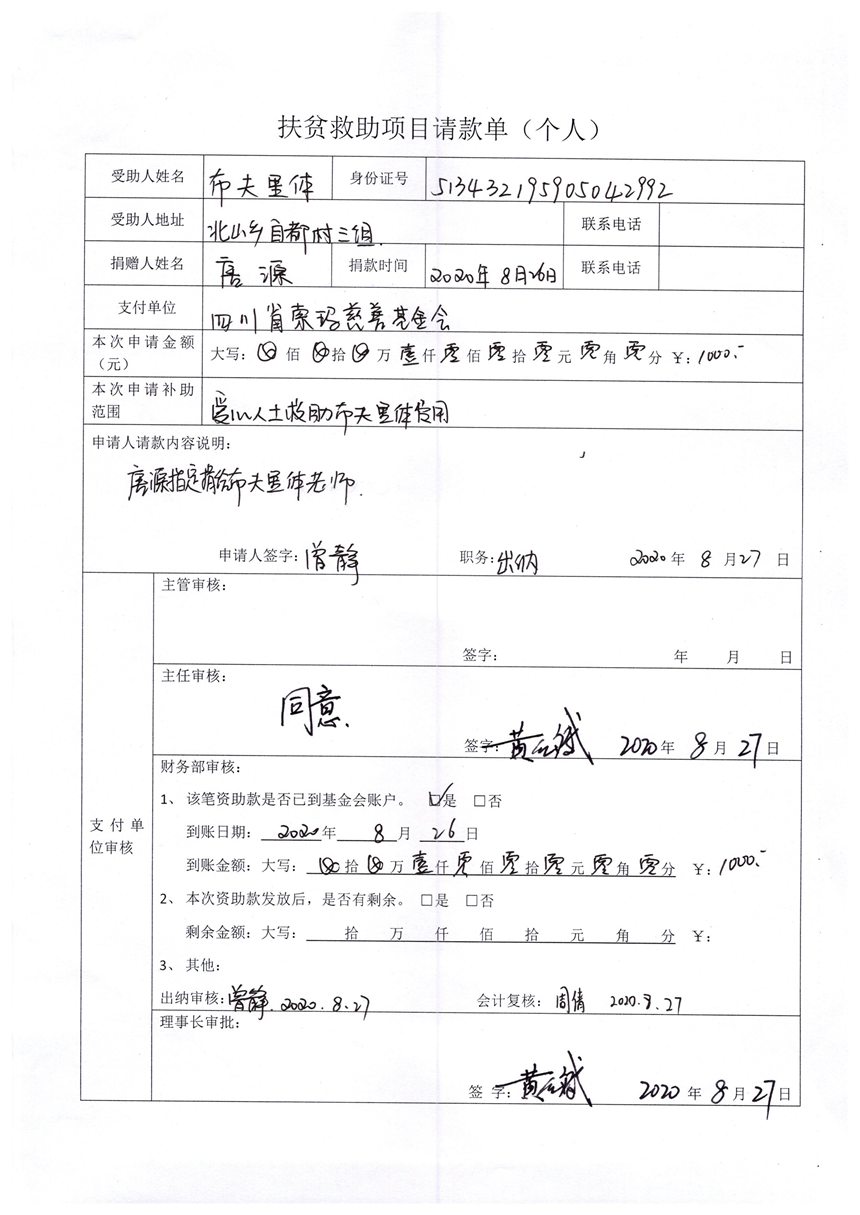 扶贫救助项目请款单（个人）
受助人姓名 布夫里体 身份证号 513432195905042992
受助人地址 北山乡自都村三组 联系电话
捐赠人姓名 唐源 捐款时间 2020年8月26日 联系电话
支付单位 四川省索玛慈善基金会
本次申请金额（元） 大写：⊗佰⊗拾⊗万壹仟零佰零拾零元零角零分 ￥：1000.-
本次申请补助范围 爱心人士救助布夫里体费用
申请人请款内容说明：
唐源指定捐给布夫里体老师.
申请人签字：曾静 职务：出纳 2020年8月27日
支付单位审核
主管审核：
签字： 年 月 日
主任审核：
同意.
签字： 2020年8月27日
财务部审核：
1、 该笔资助款是否已到基金会账户。 ☑是 □否
到账日期： 2020年 8月 26日
到账金额：大写：⊗拾⊗万壹仟零佰零拾零元零角零分 ￥：1000.-
2、 本次资助款发放后，是否有剩余。 □是 □否
剩余金额：大写： 拾 万 仟 佰 拾 元 角 分 ￥：
3、 其他：
出纳审核：曾静.2020.8.27 会计复核：周倩 2020.8.27
理事长审批：
签 字： 2020年8月27日